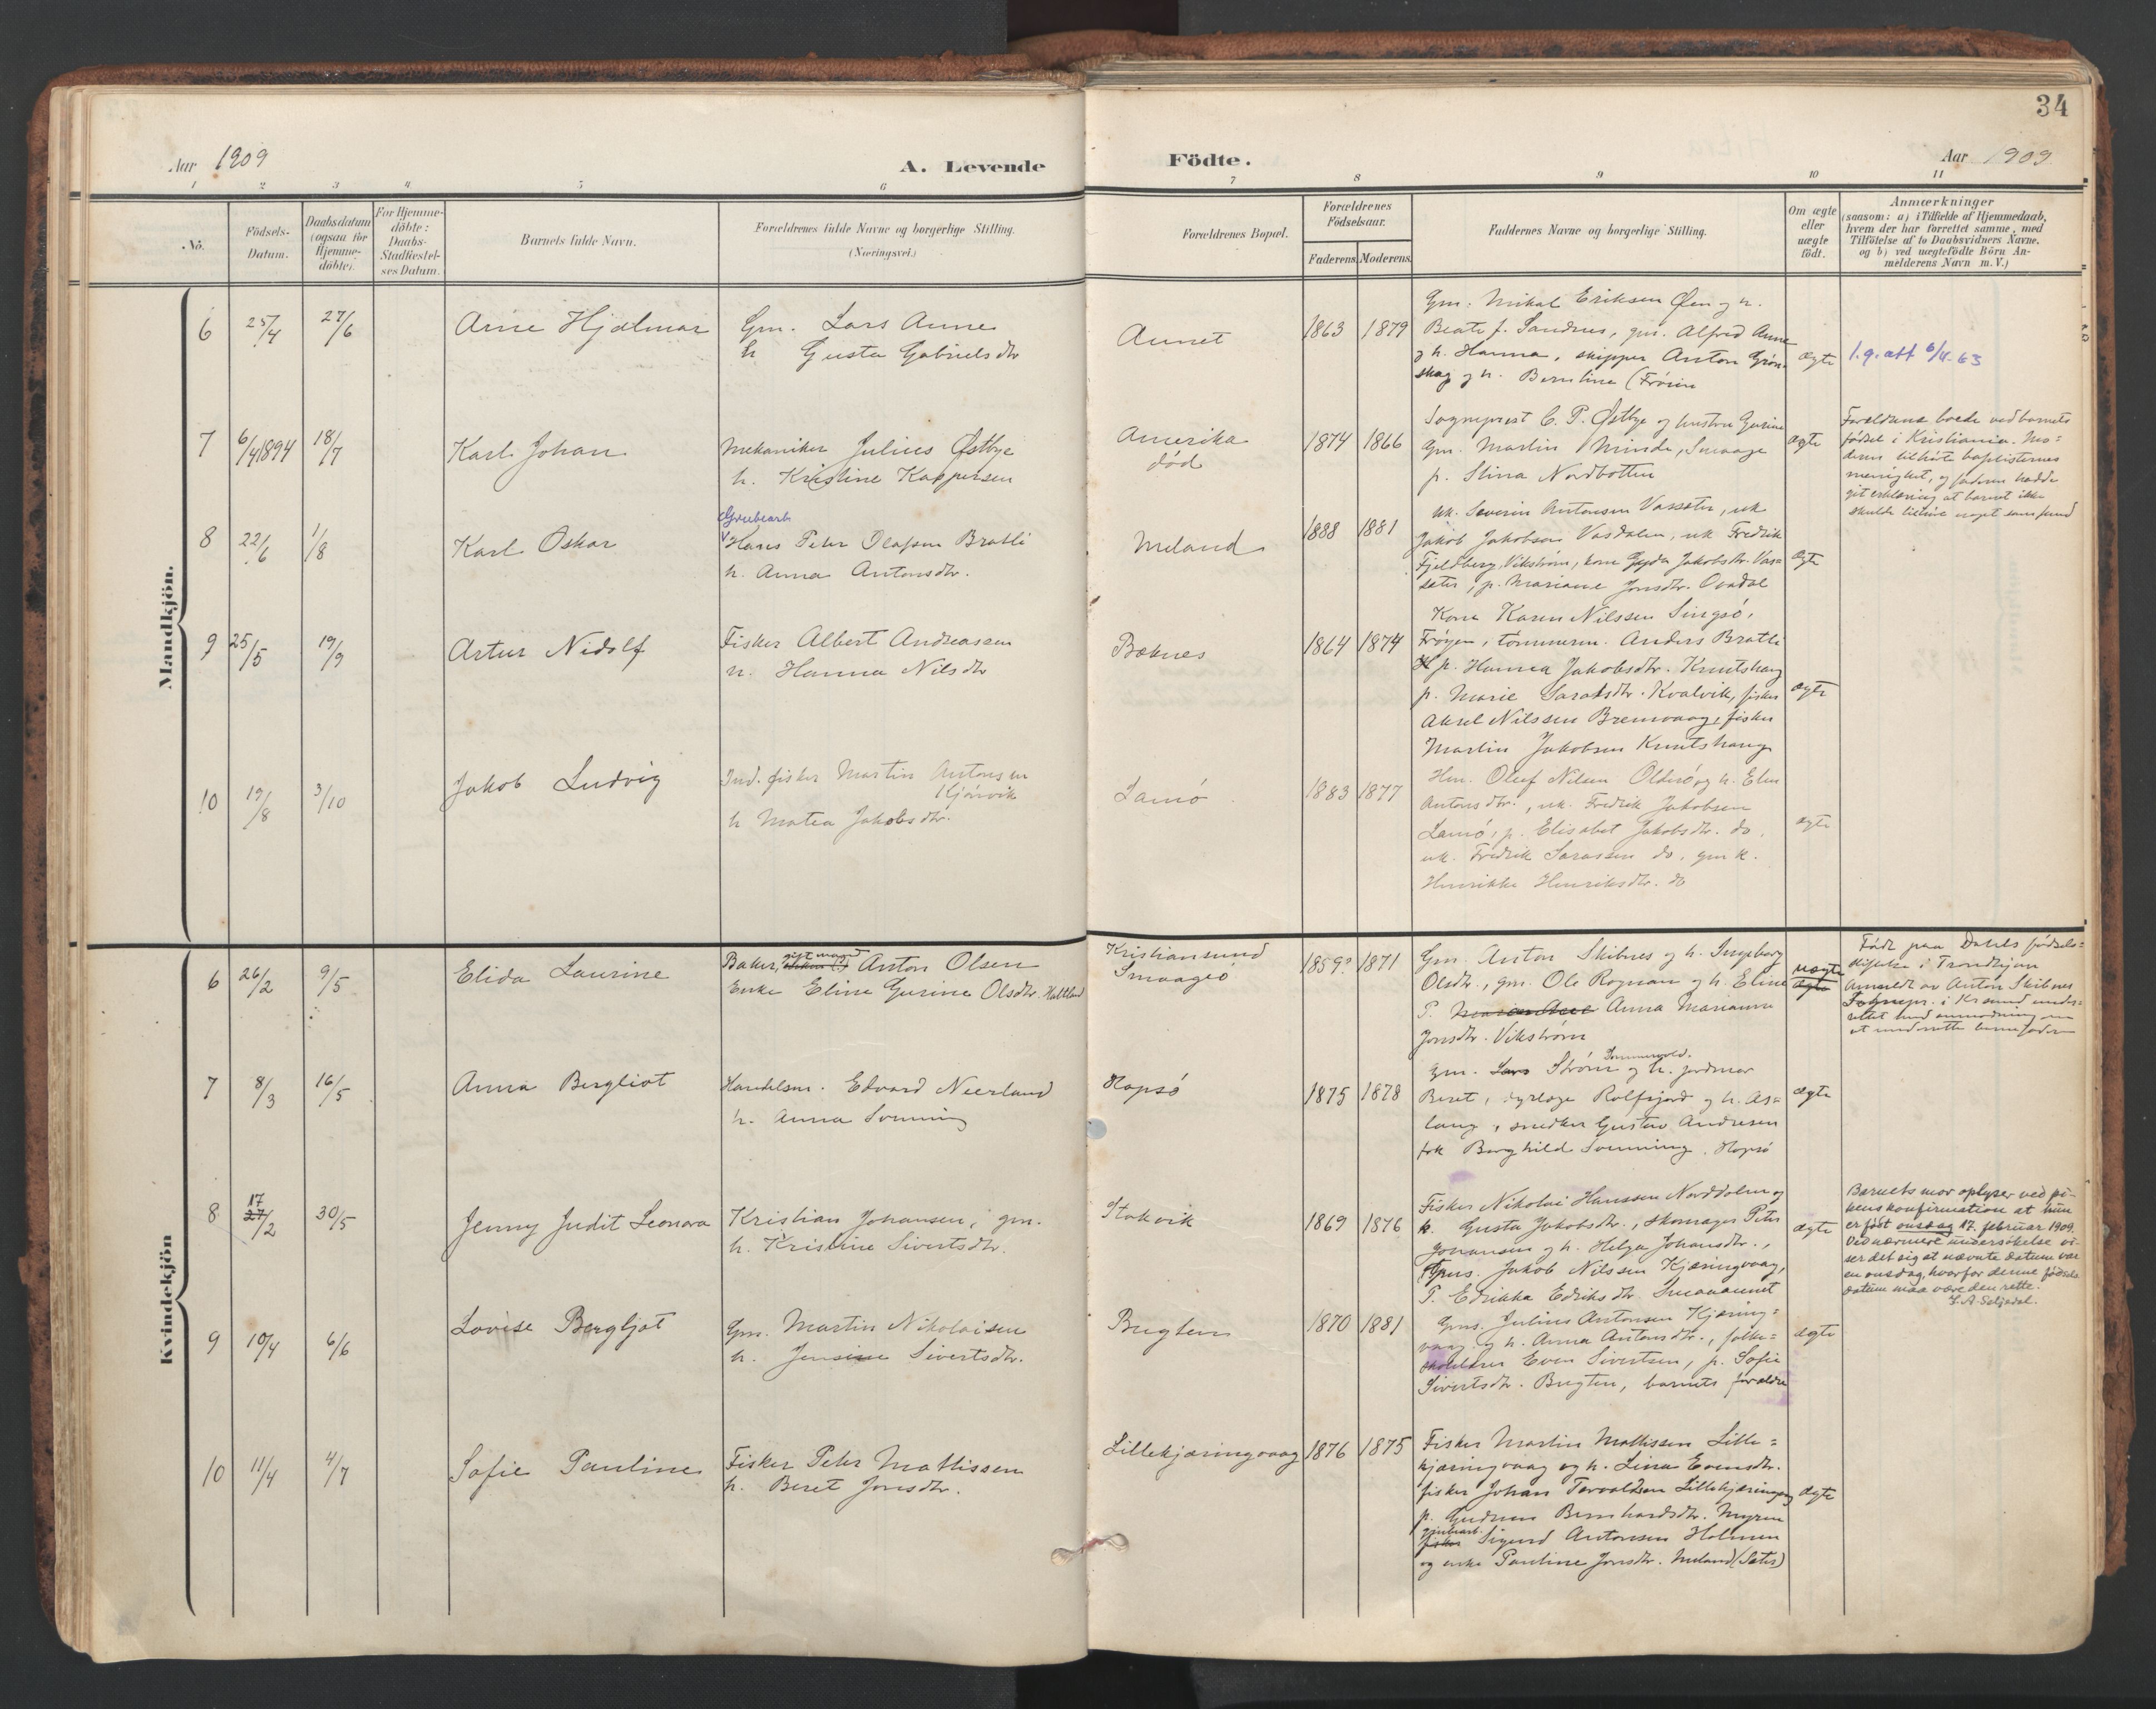 34
Aar 1909
A. Levende
Födte.
Aar 1909
1 2 3 4 5 6 7 8 9 10 11
No.
Födsels-
Datum.
Daabsdatum
(ogsaa for
Hjemme-
döbte).
For Hjemme-
döbte:
Daabs-
Stadfæstel-
ses Datum.
Barnets fulde Navn.
Forældrenes fulde Navne og borgerlige Stilling.
(Næringsvei.)
Forældrenes Bopæl.
Forældrenes
Födselsaar.
Faderens. Moderens.
Faddernes Navne og borgerlige Stilling.
Om ægte
eller
uægte
födt.
Anmærkninger
(saasom: a) i Tilfælde af Hjemmedaab,
hvem der har forrettet samme, med
Tilföielse af to Daabsvidners Navne,
og b) ved uægtefödte Börn An-
melderens Navn m. V.)
Mandkjön.
6 25/4 27/6
Arne Hjalmar
Gm. Lars Aune
h. Gusta Gabrielsdtr
Aunet
1863 1879
Gm. Mikal Eriksen Øien og h.
Beate f. Sandnes, gm. Alfred Aune
og h. Hanna, skipper Anton Grøn-
skag og h. Berntine (Frøien
ægte
l.g. att 6/4-63
7 6/4 1894 18/7
Karl Johan
Mekaniker Julius Østbye
h. Kristine Kaspersen
Amerika
død
1874 1866
Sogneprest C. P. Østbye og hustru Gurine
Gm. Martin Minde, Smaage
p. Stina Nordbotten
ægte
Forældrene boede ved barnets
fødsel i Kristiania. Mo-
deren tilhørte baptisternes
menighet, og faderen hadde
git erklæring at barnet ikke
skulde tilhøre noget samfund
8 22/6 1/8
Karl Oskar
Grubearb
Hans Peter Olafsen Bratli
h. Anna Antonsdtr.
Meland
1888 1881
uk. Severin Antonsen Vasseter, uk
Jakob Jakobsen Vasdalen, uk Fredrik
Fjeldberg, Vikstrøm, kone Gyda Jakobsdtr. Vas-
seter, p. Mariane Jonsdtr. Ovadal
ægte
9 25/5 19/9
Artur Nidolf
Fisker Albert Andreassen
h. Hanna Nilsdtr
Bæknes
1864 1874
Kone Karen Nilssen Singsø,
Frøyen, tømmerm. Anders Bratli
p. Hanna Jakobsdtr. Knutshaug
p. Marie Larsdtr. Kvalvik, fisker
Aksel Nilssen Bremvaag, fisker
Martin Jakobsen Knutshaug
ægte
10 19/8 3/10
Jakob Ludvig
Ind. fisker Martin Antonsen
Kjørvik
h Matea Jakobsdtr.
Lamø
1883 1877
Hm. Oluf Nilsen Oldersø og h. Elen
Antonsdtr., uk. Fredrik Jakobsen
Lamø, p. Elisabet Jakobsdtr. do.
uk. Fredrik Larassen do, gm k.
Henrikke Henriksdtr. do
ægte
Kvindekjön
6 26/2 9/5
Elida Laurine
gift mand
Baker, Anton Olsen
Enke Eline Gurine Olsdtr. Haltland
Kristiansund
Smaageø
1859? 1871
Gm. Anton Skibnes og h. Ingeborg
Olsdtr., gm. Ole Rognan og h. Eline
P. Anna Marianne
Jonsdtr. Vikstrøm
uægte
ægte
Født paa Dahls fødsels-
stiftelse i Trondhjem
Anmeldt av Anton Skibnes
Sognepr. i Krsund under-
rettet med anmodning om
at underrette barnefader
7 8/3 16/5
Anna Bergliot
Handelsm. Edvard Neerland
h. Anna Sonning
Hopsø
1875 1878
Gm. Lars Strøm og h. jordmor
Beret, dyrlæge Rolfsjord og h. As-
laug, snedker Gustav Andresen
frk Borghild Sonning, Hopsø
ægte
8 17 27/2 30/5
Jenny Judit Leonora
Kristian Johansen, gm.
h. Kristine Sivertsdtr.
Stokvik
1869 1876
Fisker Nikolai Hanssen Norddalen og
h. Gusta Jakobsdtr., skomager Peter
Johansen og h. Helga Johansdtr.,
Gms. Jakob Nilssen Kjæringvaag,
P. Edrikka Edriksdtr. Smaaaunet
ægte
Barnets mor oplyser ved pi-
kens konfirmation at hun
er født onsdag 17. februar 1909.
Ved nærmere undersøkelse vi-
ser det sig at nævnte datum var
en onsdag, hvorfor denne fødsels-
datum maa være den rette.
S. A. Seljedal.
9 10/4 6/6
Lovise Bergljot
Gm. Martin Nikolaisen
h. Jensine Sivertsdtr.
Bugten
1870 1881
Gms. Julius Antonsen Kjæring-
vaag og h. Anna Antonsdtr., folke-
skolelærer Even Sivertsen, p. Sofie
Sivertsdtr. Bugten, barnets forældre
ægte
10 11/4 4/7
Sofie Pauline
Fisker Peter Mathissen
h. Beret Jonsdtr.
Lillekjæringvaag
1876 1875
Fisker Martin Mathissen Lille-
kjæringvaag og h. Lina Evensdtr.
fisker Johan Torvaldsen Lillekjæringvaag
p. Gudrun Bernhardsdtr. Myren
grubearb.
fisker Sigurd Antonsen Holmen
og enke Pauline Jonsdtr. Meland (Sæter)
ægte